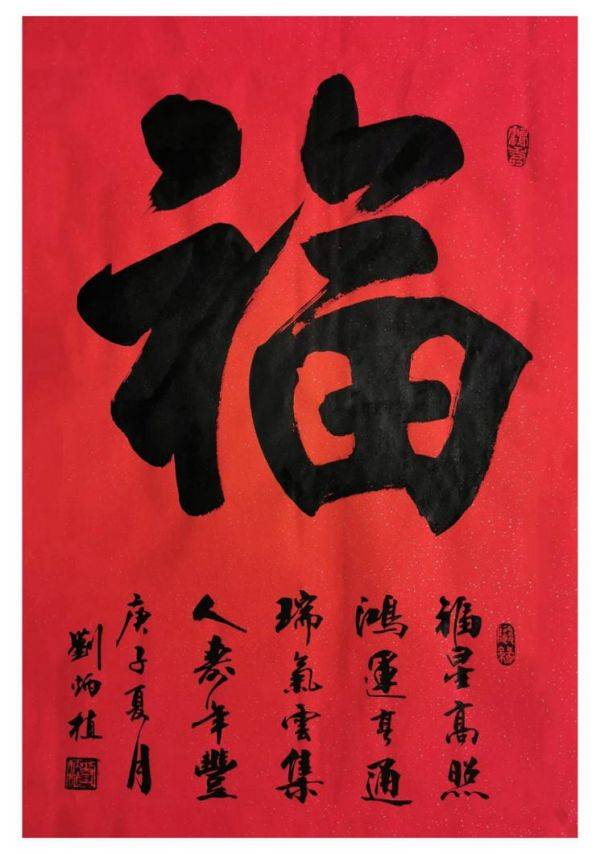 福
福星高照
鴻運亨通
瑞氣雲集
人壽年豐
庚子夏月
劉炳植